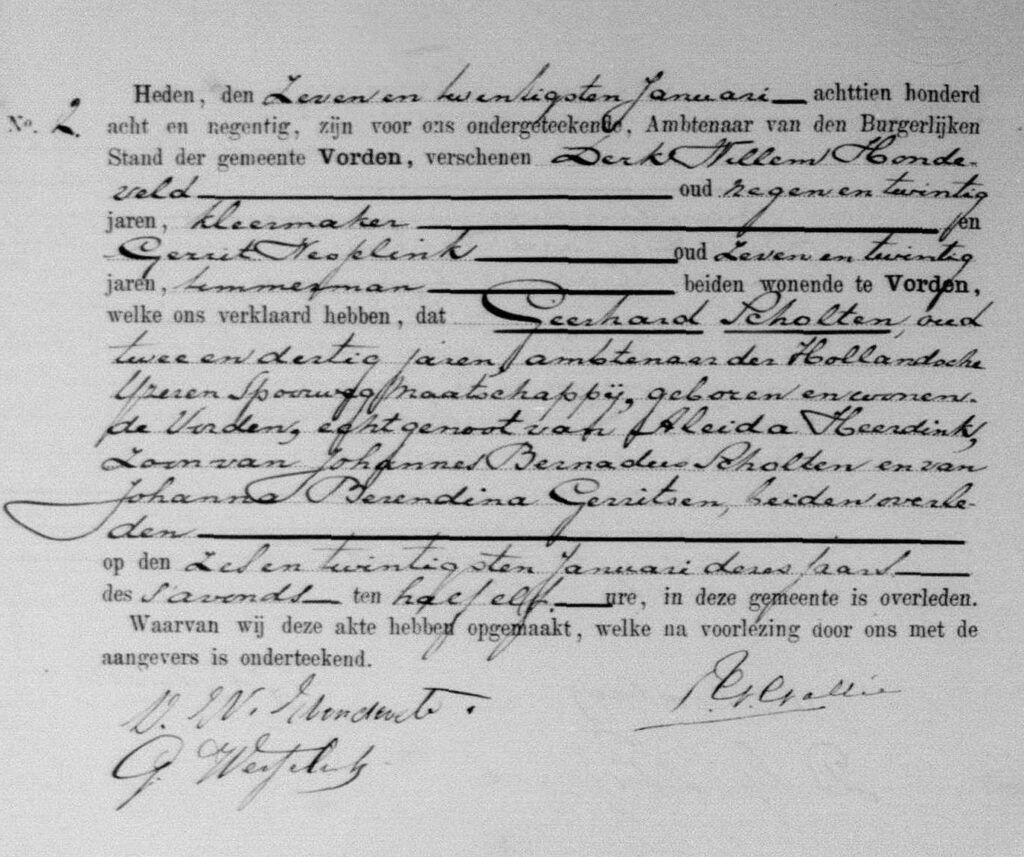 Heden, den Zeven en twintigsten Januari achttien honderd
No. 2. acht en negentig, zijn voor ons ondergeteekende, Ambtenaar van den Burgerlijken
Stand der gemeente Vorden, verschenen Derk Willem Honde-
veld oud negen en twintig
jaren, kleermaker en
Gerrit Wesselink oud zeven en twintig
jaren, timmerman beiden wonende te Vorden,
welke ons verklaard hebben, dat Geerhard Scholten, oud
twee en dertig jaren, ambtenaar der Hollandsche
IJzeren Spoorweg Maatschappij, geboren en wonen-
de Vorden, echtgenoot van Aleida Heerdink,
Zoon van Johannes Bernadus Scholten en van
Johanna Berendina Gerritsen, beiden overle-
den
op den Zes en twintigsten Januari dezes jaars
des s'avonds ten half elf ure, in deze gemeente is overleden.
Waarvan wij deze akte hebben opgemaakt, welke na voorlezing door ons met de
aangevers is onderteekend.
D. W. Hondeveld. Gallée
G. Wesselink